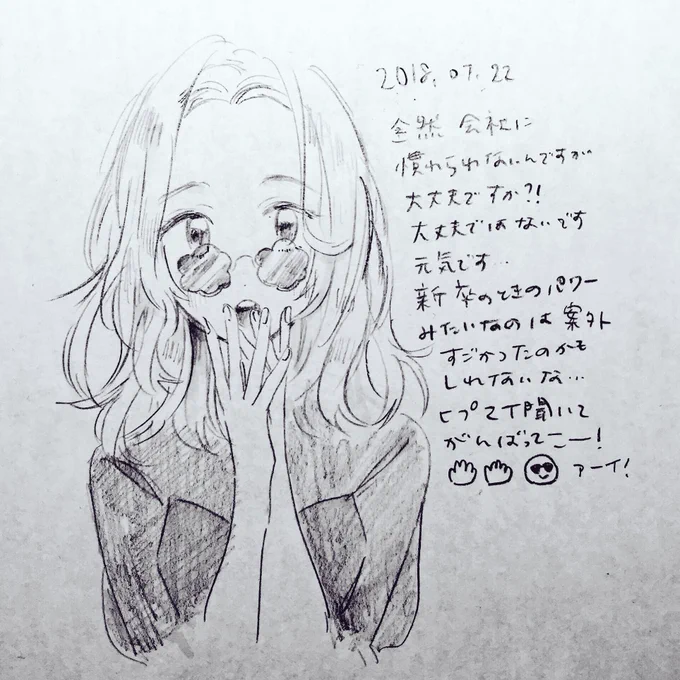 2018.07.22
全然 会社に
慣れられないんですが
大丈夫ですか?!
大丈夫ではないです
元気です…
新卒のときのパワー
みたいなのは案外
すごかったのかも
しれないな…
ヒプマイ聞いて
がんばってこー!
アーイ!